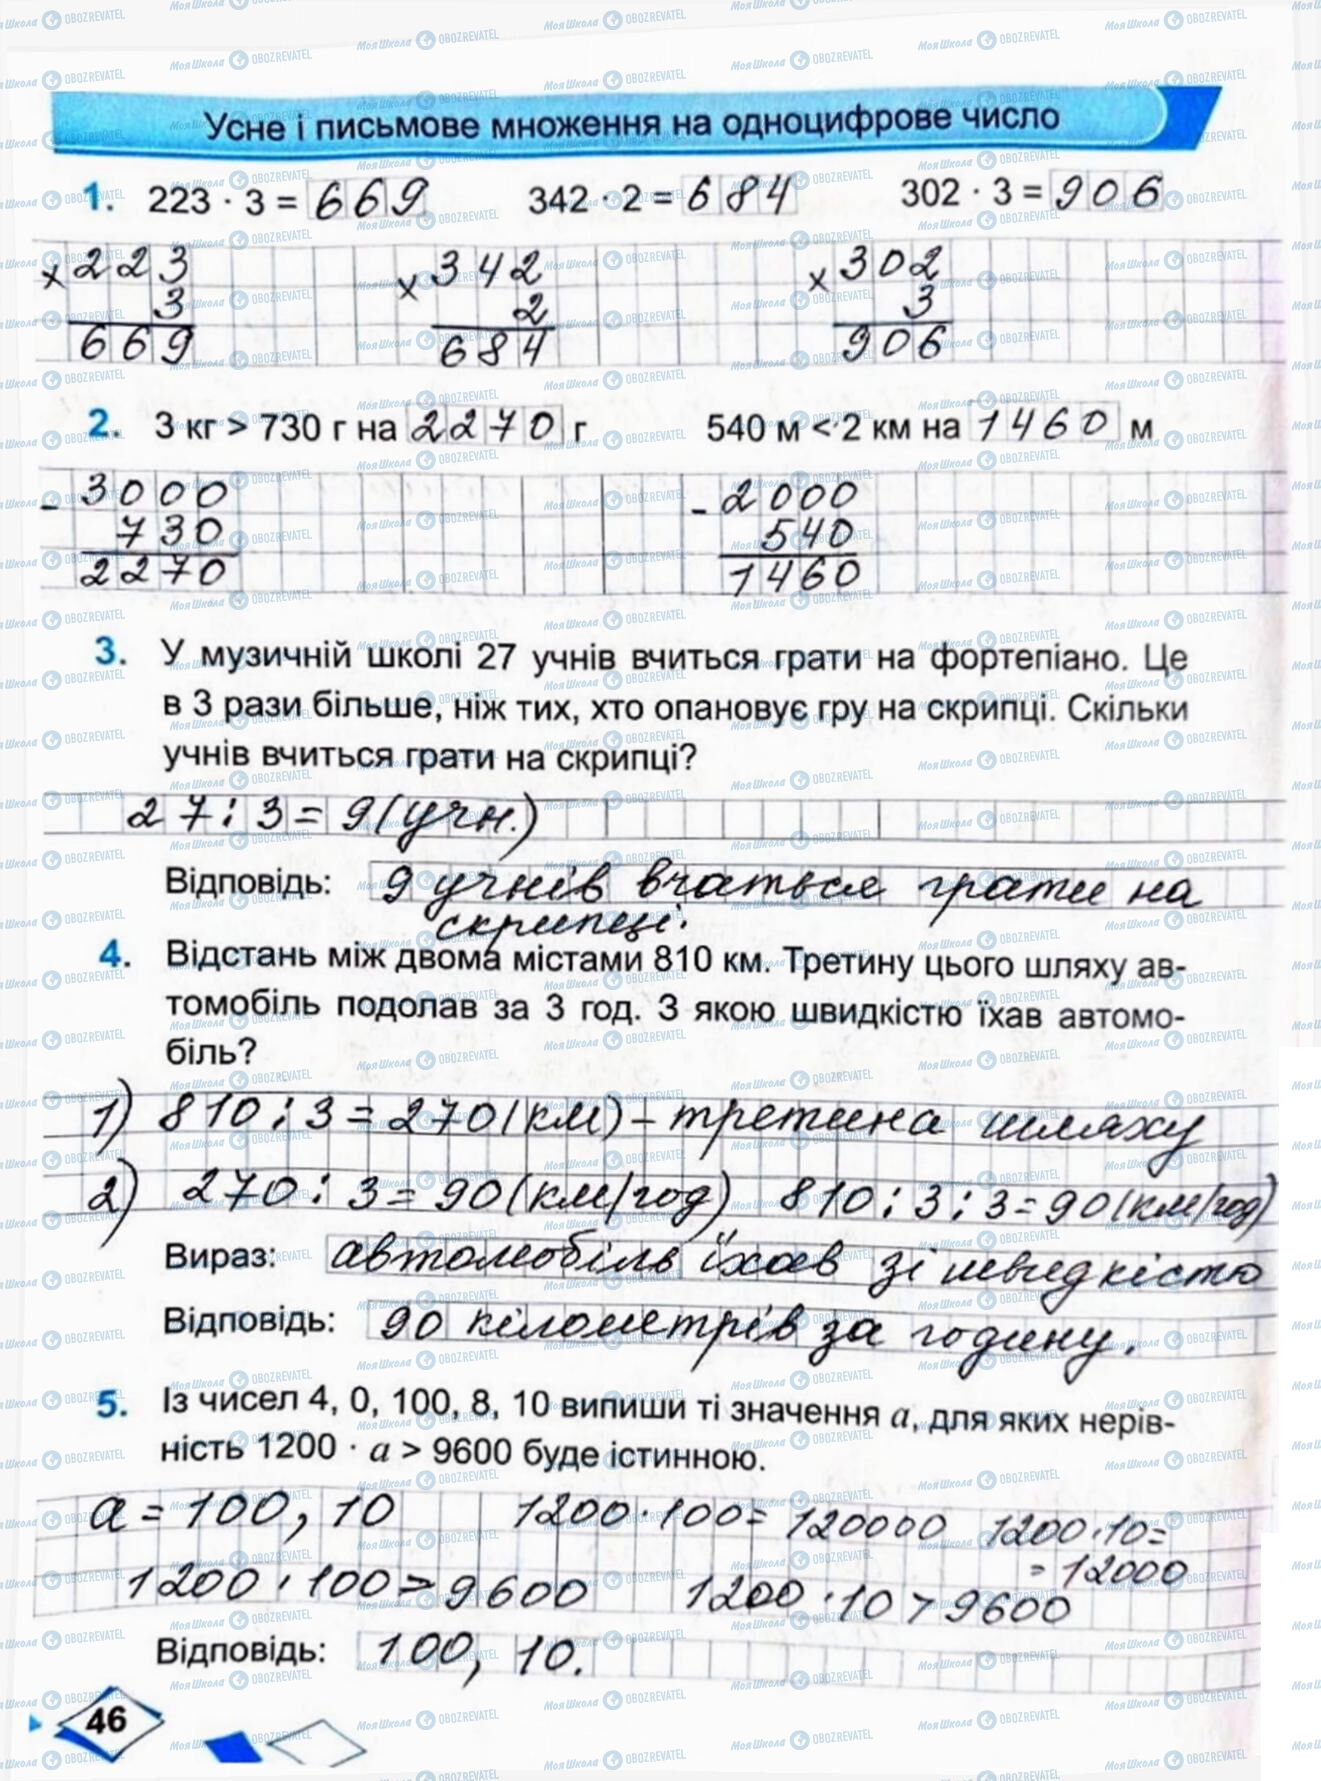 Усне і письмове множення на одноцифрове число
1. 223 · 3 = 669 342 · 2 = 684 302 · 3 = 906
× 223 × 342 × 302
3 2 3
669 684 906
2. 3 кг > 730 г на 2270 г 540 м < 2 км на 1460 м
- 3000 - 2000
730 540
2270 1460
3. У музичній школі 27 учнів вчиться грати на фортепіано. Це
в 3 рази більше, ніж тих, хто опановує гру на скрипці. Скільки
учнів вчиться грати на скрипці?
27 : 3 = 9 (учн.)
Відповідь: 9 учнів вчаться грати на
скрипці.
4. Відстань між двома містами 810 км. Третину цього шляху ав-
томобіль подолав за 3 год. З якою швидкістю їхав автомо-
біль?
1) 810 : 3 = 270 (км) – третина шляху
2) 270 : 3 = 90 (км/год) 810 : 3 : 3 = 90 (км/год)
Вираз: автомобіль їхав зі швидкістю
Відповідь: 90 кілометрів за годину.
5. Із чисел 4, 0, 100, 8, 10 випиши ті значення a, для яких нерів-
ність 1200 · a > 9600 буде істинною.
a = 100, 10 1200 · 100 = 120000 1200 · 10 =
= 12000
1200 · 100 > 9600 1200 · 10 > 9600
Відповідь: 100, 10.
46
МояШкола OBOZREVATEL